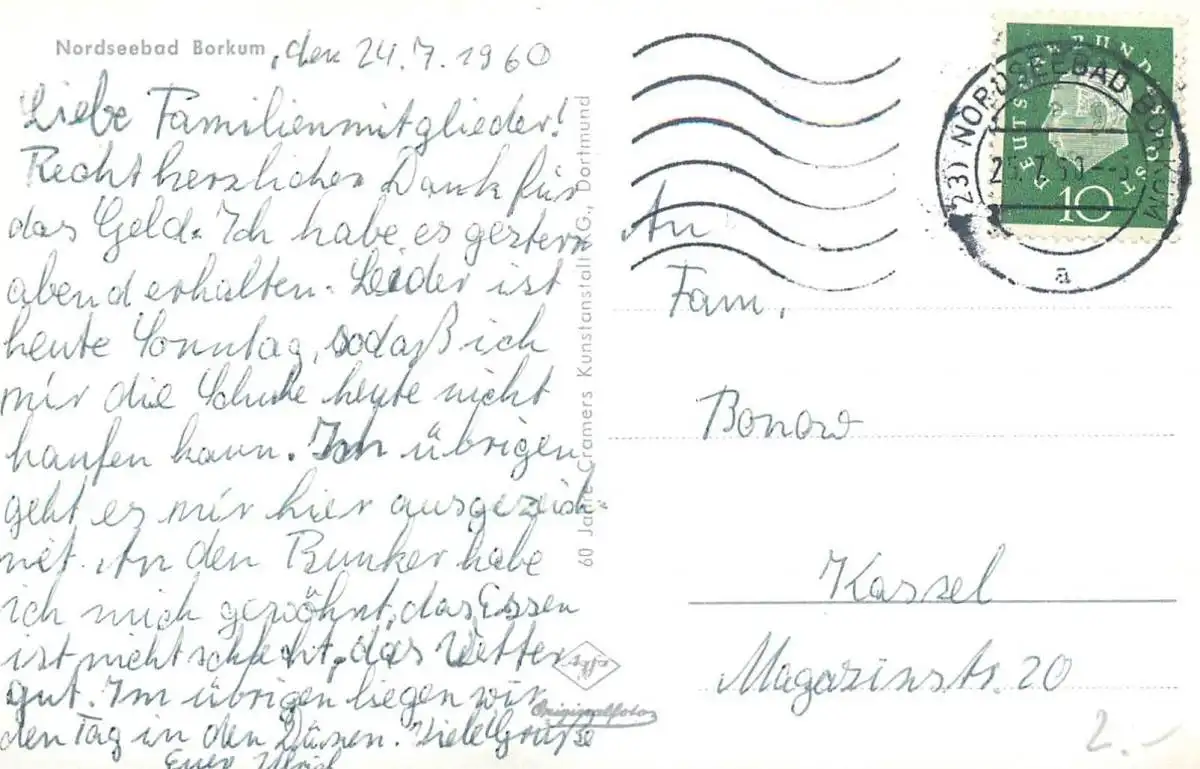 Nordseebad Borkum, den 24.7.1960
Liebe Familienmitglieder!
Recht herzlichen Dank für
das Geld. Ich habe es gestern
abend erhalten. Leider ist
heute Sonntag sodaß ich
mir die Schuhe heute nicht
kaufen kann. Im übrigen
geht es mir hier ausgezeich-
net. An den Bunker habe
ich mich gewöhnt, das Essen
ist nicht schlecht, das Wetter
gut. Im übrigen liegen wir
den Tag in den Dünen. Viele Grüße
Euer Ulrich
60 Jahre Cramers Kunstanstalt KG., Dortmund
Originalfoto
DEUTSCHE BUNDESPOST
10
(23) NORDSEEBAD BORKUM
a
An
Fam.
Bonow
Kassel
Magazinstr. 20
2.-